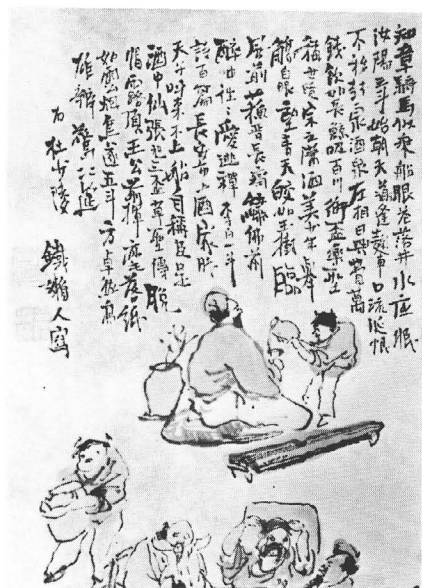 知章騎馬似乘船眼花落井水底眠
汝陽三斗始朝天道逢麴車口流涎恨
不移封向酒泉左相日興費萬
錢飲如長鯨吸百川銜盃樂聖
稱世賢宗之瀟洒美少年舉
觴白眼望青天皎如玉樹臨
風前蘇晉長齋繡佛前
醉中往往愛逃禪李白一斗
詩百篇長安市上酒家眠
天子呼來不上船自稱臣是
酒中仙張旭三盃草聖傳脫
帽露頂王公前揮毫落紙
如雲烟焦遂五斗方卓然高
雄辯驚四筵
杜少陵
鐵嬾人寫